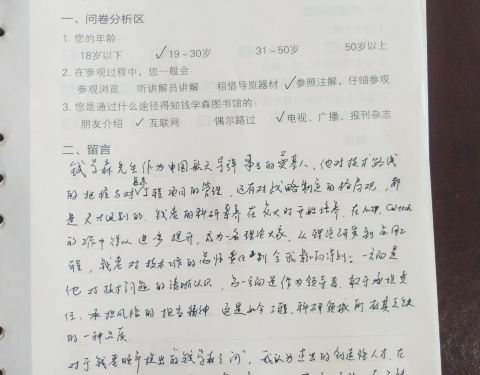 一、问卷分析区
1. 您的年龄:
18岁以下 ✓19~30岁 31~50岁 50岁以上
2. 在参观过程中，您一般会
参观浏览 听讲解员讲解 租借导览器材 ✓参照注解，仔细参观
3. 您是通过什么途径得知钱学森图书馆的
朋友介绍 ✓互联网 偶尔路过 ✓电视、广播、报刊杂志
二、留言
钱学森先生作为中国航天导弹事业的奠基人，他对技术路线
的把握与对复杂工程项目的管理，还有对战略制定的格局观，都
是天才级别的。钱老的科研素养在交大时开始培养，在MIT, Caltech
的工作中得以进步提升，成为一名理论大家，从理论研究到应用工
程，钱老对技术工作的总师责任制令我影响深刻：一方面是
他对技术问题的清晰认识，另一方面是作为领导者，敢于承担责
任、承担风险的担当精神，这是如今工程、科研领域所真正缺
的一种品质。
对于钱老晚年提出的"钱学森之问"，我认为杰出的创造性人才，在